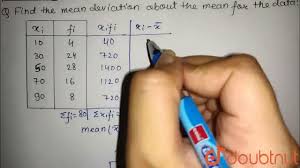 Q Find the mean deviation about the mean for the data:
xi fi xifi xi-x̄
10 4 40
30 24 720
50 28 1400
70 16 1120
90 8 720
Σfi=80 Σxifi
mean (x̄
doubtnut